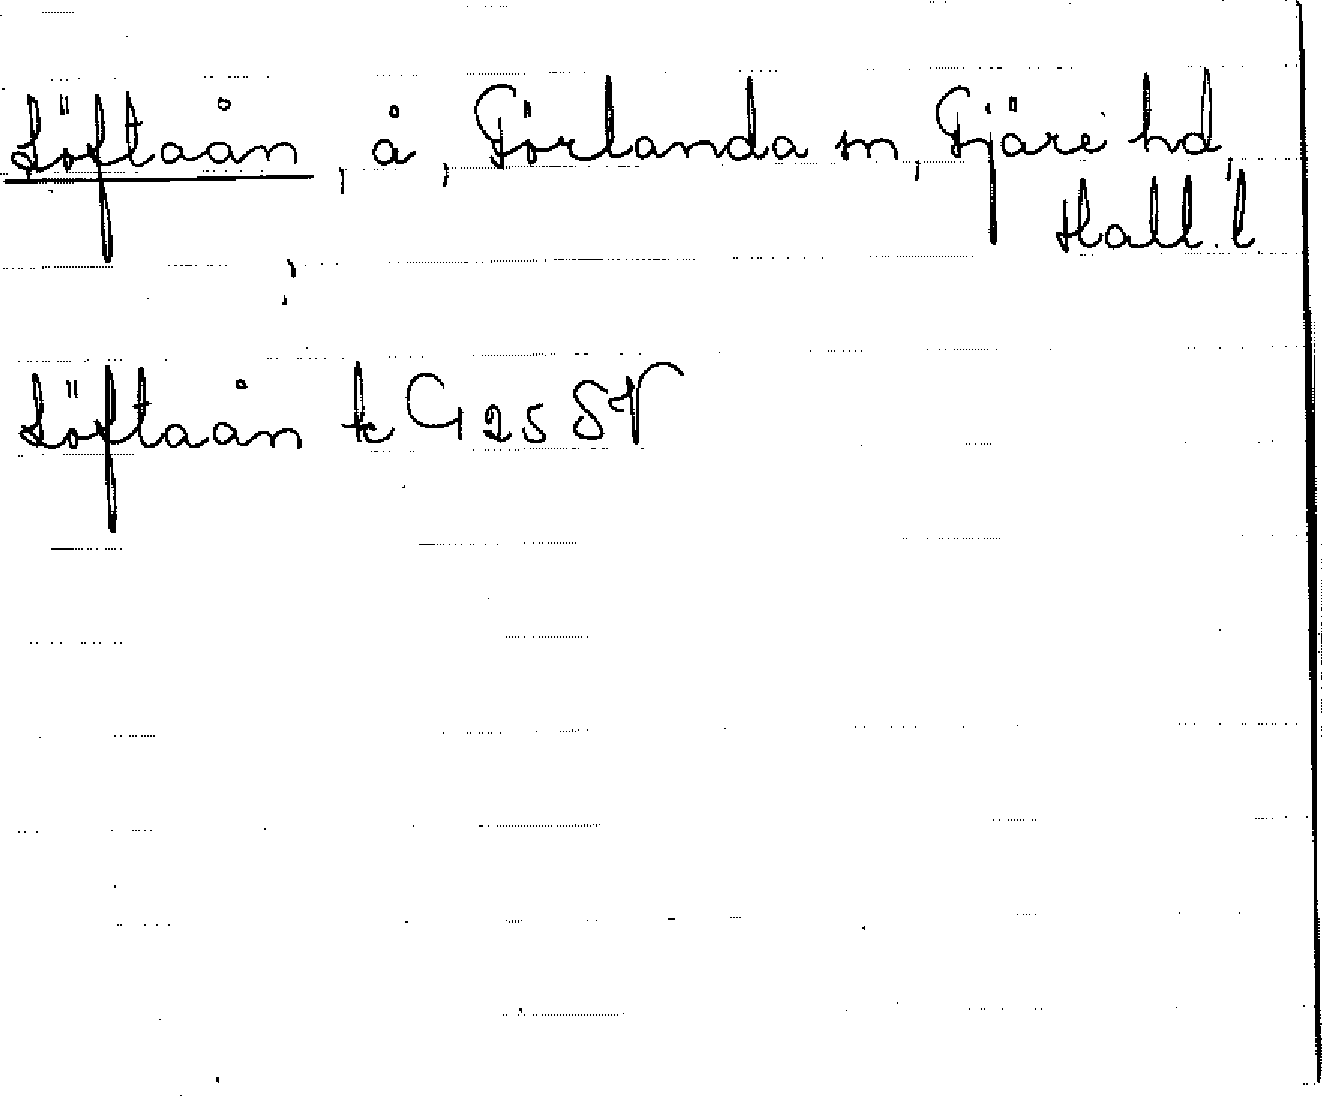 Löftaån, å, Förlanda sn, Fjäre hd,
Hall. l
Löftaån tc G 25 SV